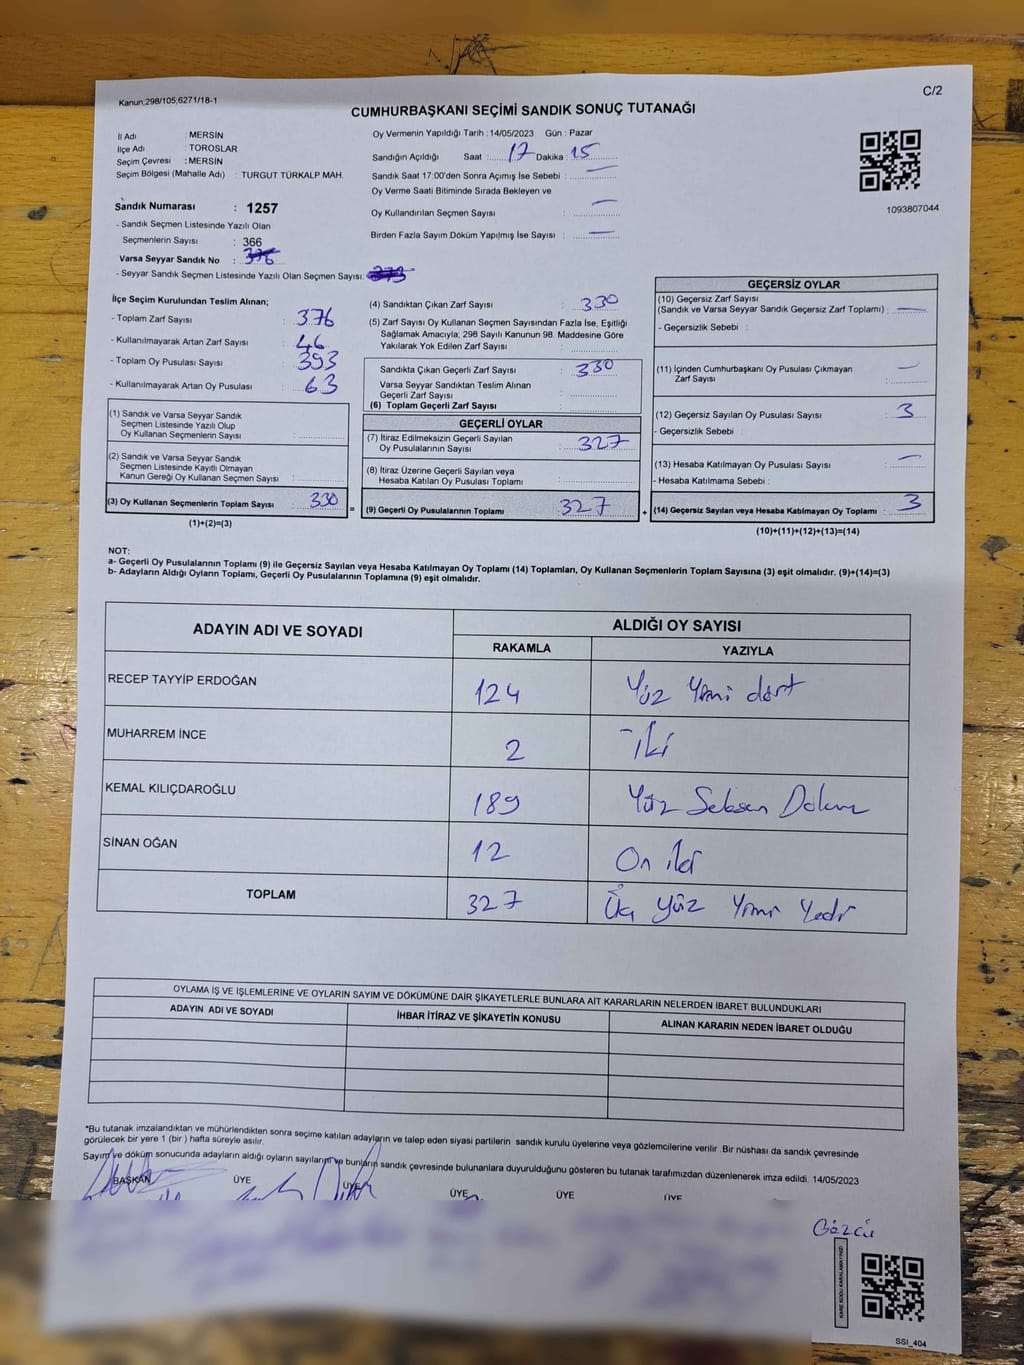 Kanun,298/105;6271/18-1
C/2
CUMHURBAŞKANI SEÇİMİ SANDIK SONUÇ TUTANAĞI
İl Adı : MERSİN
İlçe Adı : TOROSLAR
Seçim Çevresi : MERSİN
Seçim Bölgesi (Mahalle Adı) : TURGUT TÜRKALP MAH.
Sandık Numarası : 1257
- Sandık Seçmen Listesinde Yazılı Olan
Seçmenlerin Sayısı : 366
Varsa Seyyar Sandık No :
- Seyyar Sandık Seçmen Listesinde Yazılı Olan Seçmen Sayısı:
Oy Vermenin Yapıldığı Tarih : 14/05/2023 Gün : Pazar
Sandığın Açıldığı Saat : 17 Dakika : 15
Sandık Saat 17:00'den Sonra Açımış İse Sebebi : —
Oy Verme Saati Bitiminde Sırada Bekleyen ve
Oy Kullandırılan Seçmen Sayısı : —
Birden Fazla Sayım Döküm Yapılmış İse Sayısı : —
1093807044
İlçe Seçim Kurulundan Teslim Alınan;
- Toplam Zarf Sayısı : 376
- Kullanılmayarak Artan Zarf Sayısı : 46
- Toplam Oy Pusulası Sayısı : 393
- Kullanılmayarak Artan Oy Pusulası : 63
(1) Sandık ve Varsa Seyyar Sandık
Seçmen Listesinde Yazılı Olup
Oy Kullanan Seçmenlerin Sayısı :
(2) Sandık ve Varsa Seyyar Sandık
Seçmen Listesinde Kayıtlı Olmayan
Kanun Gereği Oy Kullanan Seçmen Sayısı :
(3) Oy Kullanan Seçmenlerin Toplam Sayısı : 330
(1)+(2)=(3)
=
(4) Sandıktan Çıkan Zarf Sayısı : 330
(5) Zarf Sayısı Oy Kullanan Seçmen Sayısından Fazla İse, Eşitliği
Sağlamak Amacıyla; 298 Sayılı Kanunun 98. Maddesine Göre
Yakılarak Yok Edilen Zarf Sayısı :
Sandıkta Çıkan Geçerli Zarf Sayısı : 330
Varsa Seyyar Sandıktan Teslim Alınan
Geçerli Zarf Sayısı :
(6) Toplam Geçerli Zarf Sayısı :
GEÇERLİ OYLAR
(7) İtiraz Edilmeksizin Geçerli Sayılan
Oy Pusulalarının Sayısı : 327
(8) İtiraz Üzerine Geçerli Sayılan veya
Hesaba Katılan Oy Pusulası Toplamı :
(9) Geçerli Oy Pusulalarının Toplamı : 327
+
GEÇERSİZ OYLAR
(10) Geçersiz Zarf Sayısı
(Sandık ve Varsa Seyyar Sandık Geçersiz Zarf Toplamı) : —
- Geçersizlik Sebebi :
(11) İçinden Cumhurbaşkanı Oy Pusulası Çıkmayan
Zarf Sayısı : —
(12) Geçersiz Sayılan Oy Pusulası Sayısı : 3
- Geçersizlik Sebebi :
(13) Hesaba Katılmayan Oy Pusulası Sayısı : —
- Hesaba Katılmama Sebebi :
(14) Geçersiz Sayılan veya Hesaba Katılmayan Oy Toplamı : 3
(10)+(11)+(12)+(13)=(14)
NOT:
a- Geçerli Oy Pusulalarının Toplamı (9) ile Geçersiz Sayılan veya Hesaba Katılmayan Oy Toplamı (14) Toplamları, Oy Kullanan Seçmenlerin Toplam Sayısına (3) eşit olmalıdır. (9)+(14)=(3)
b- Adayların Aldığı Oyların Toplamı, Geçerli Oy Pusulalarının Toplamına (9) eşit olmalıdır.
ADAYIN ADI VE SOYADI
ALDIĞI OY SAYISI
RAKAMLA YAZIYLA
RECEP TAYYİP ERDOĞAN 124 Yüz Yirmi dört
MUHARREM İNCE 2 -iki
KEMAL KILIÇDAROĞLU 189 Yüz Seksen Dokuz
SİNAN OĞAN 12 On iki
TOPLAM 327 Üç Yüz Yirmi Yedi
OYLAMA İŞ VE İŞLEMLERİNE VE OYLARIN SAYIM VE DÖKÜMÜNE DAİR ŞİKAYETLERLE BUNLARA AİT KARARLARIN NELERDEN İBARET BULUNDUKLARI
ADAYIN ADI VE SOYADI İHBAR İTİRAZ VE ŞİKAYETİN KONUSU ALINAN KARARIN NEDEN İBARET OLDUĞU
*Bu tutanak imzalandıktan ve mühürlendikten sonra seçime katılan adayların ve talep eden siyasi partilerin sandık kurulu üyelerine veya gözlemcilerine verilir .Bir nüshası da sandık çevresinde
görülecek bir yere 1 (bir ) hafta süreyle asılır.
Sayım ve döküm sonucunda adayların aldığı oyların sayılarını ve bunların sandık çevresinde bulunanlara duyurulduğunu gösteren bu tutanak tarafımızdan düzenlenerek imza edildi. 14/05/2023
BAŞKAN ÜYE ÜYE ÜYE ÜYE ÜYE
Gözcü
SSI_404